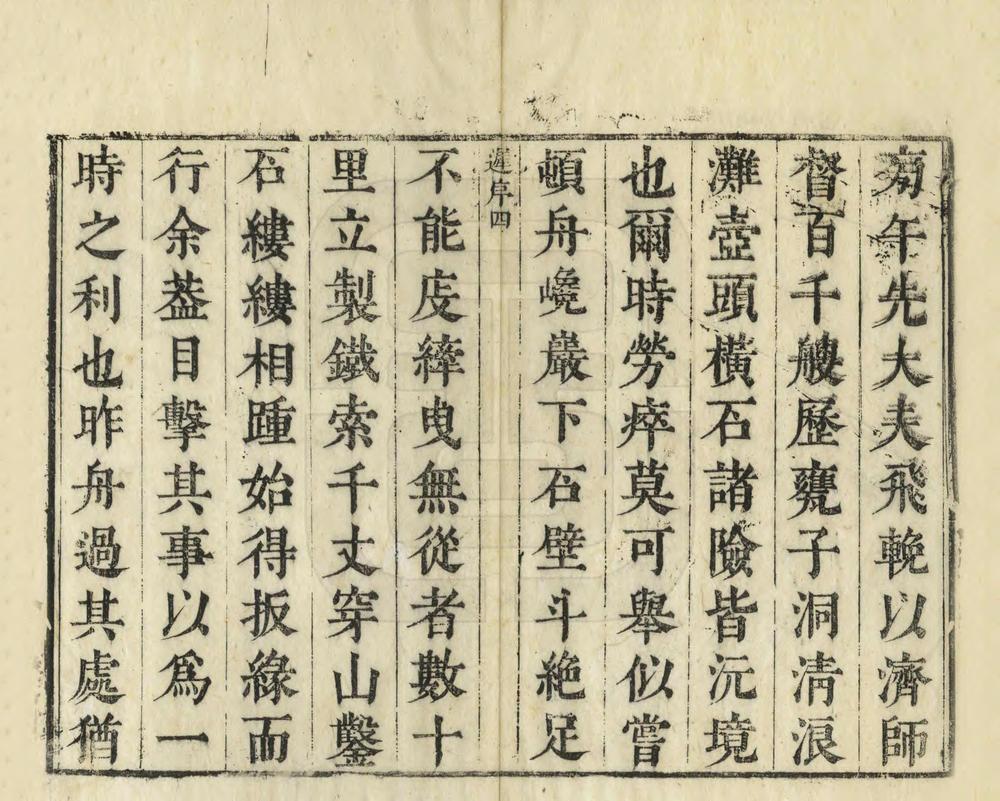 旁午先大夫飛輓以濟師
督百千艘歷甕子洞清浪
灘壺頭橫石諸險皆沅境
也爾時勞瘁莫可舉似嘗
頓舟巉巖下石壁斗絶足
遲序四
不能庋縴曳無從者數十
里立製鐵索千丈穿山鑿
石縷縷相踵始得扳緣而
行余葢目擊其事以爲一
時之利也昨舟過其處猶